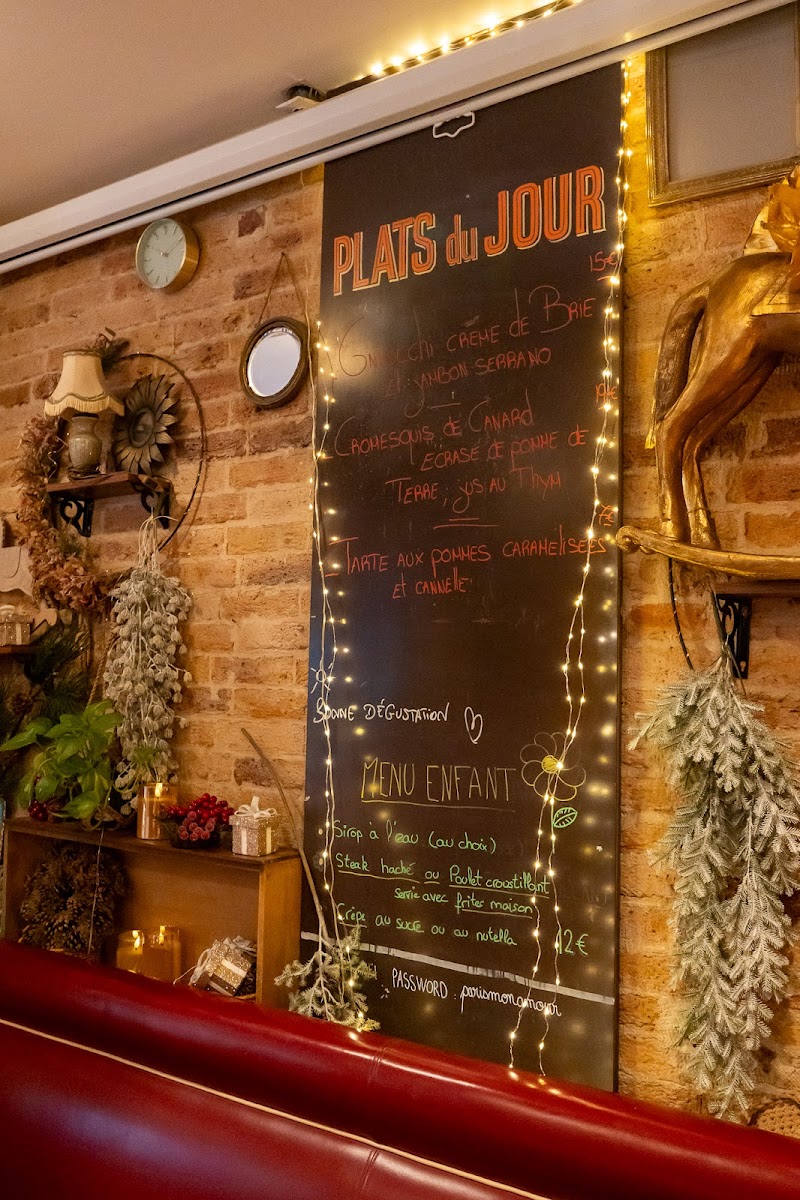 PLATS du JOUR
15€
Gnocchi CREME de BRIE
et JAMBON SERRANO
CROMESQUIS de CANARD
ECRASE de POMME de
TERRE, jus AU THYM
7€
TARTE AUX POMMES CARAMELISEES
ET CANNELLE
BONNE DÉGUSTATION
MENU ENFANT
Sirop à l'eau (au choix)
Steak haché ou Poulet croustillant
servie avec frites maison
Crêpe au sucre ou au nutella 12€
PASSWORD : parismonamour